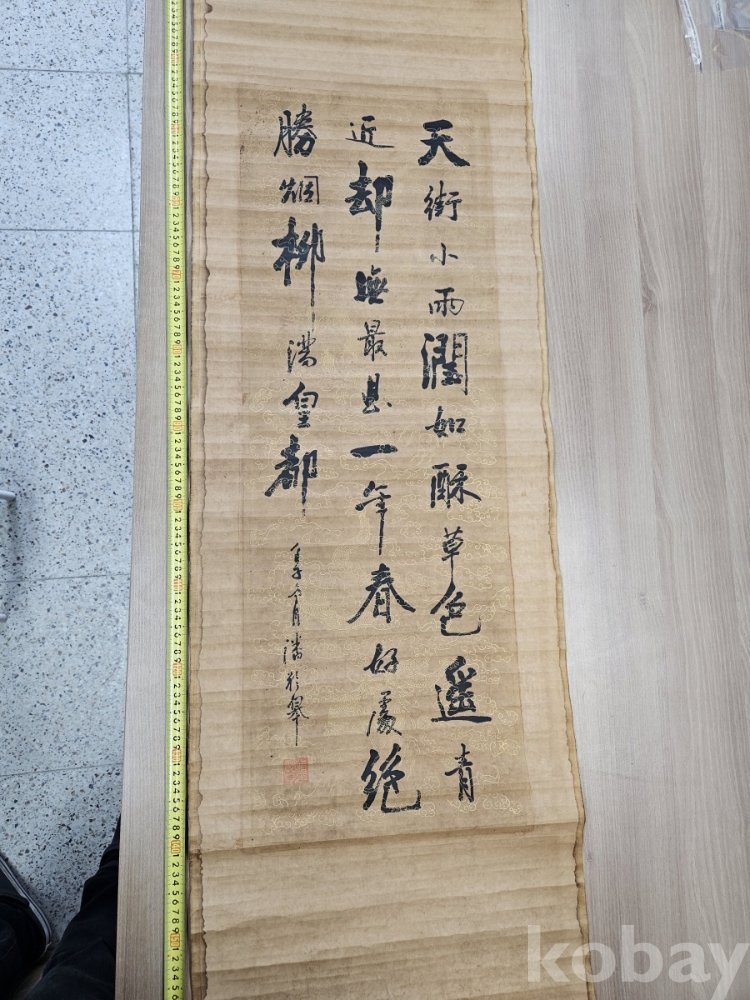 天街小雨潤如酥草色遙看
近却無最是一年春好處絕
勝烟柳滿皇都
潘齡皋
kobay